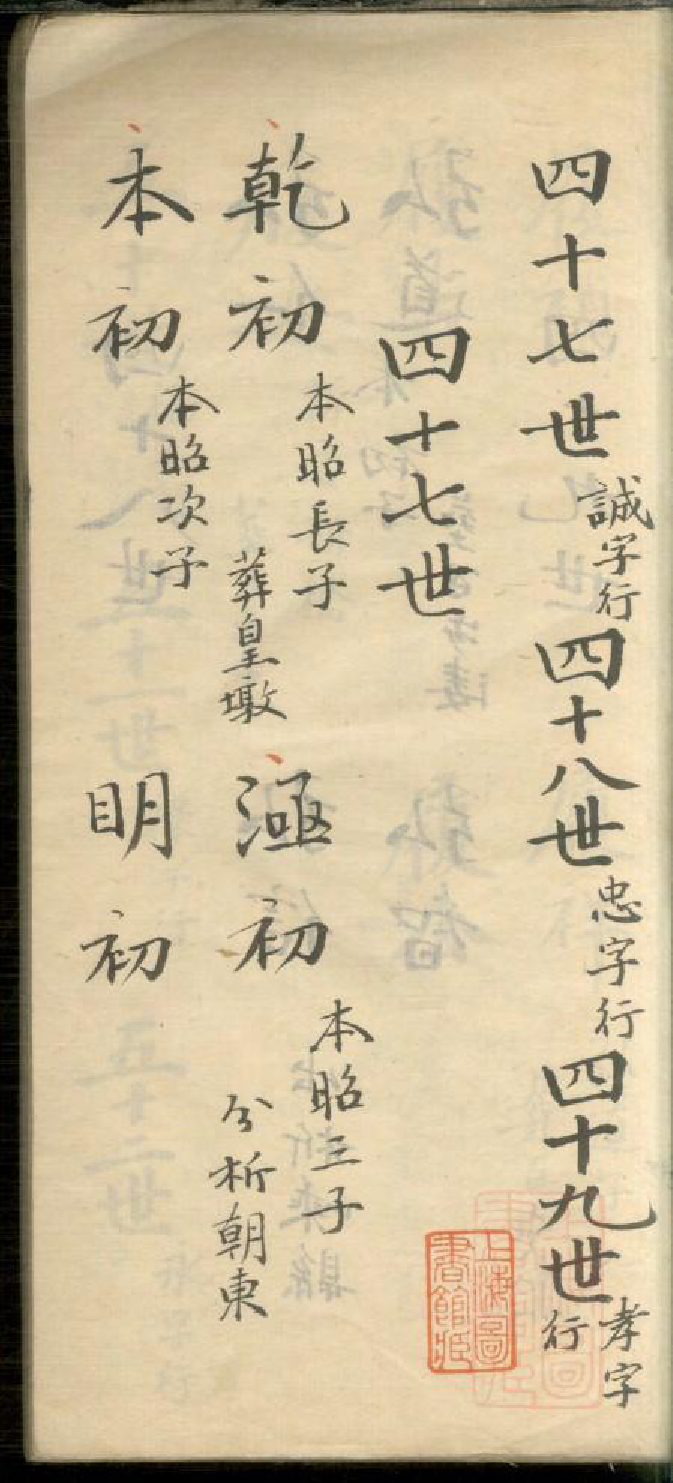 四十七世誠字行四十八世忠字行四十九世孝字行
四十七世
乾初本昭長子葬皇墩極初本昭三子分析朝東
本初本昭次子明初
上海圖書館藏